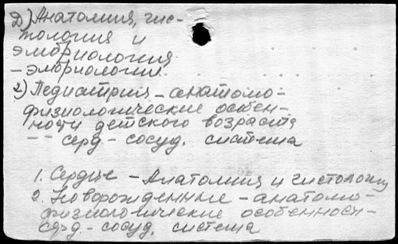 2) Анатомия, гис-
тология и
эмбриология
- эмбриологии.
2) Педиатрия - анатомо-
физиологические особен-
ности детского возраста
-- серд - сосуд. система
1. Сердце - Анатомия и гистология
2. Новорожденные - анатомо-
физиологические особенности -
серд - сосуд. система